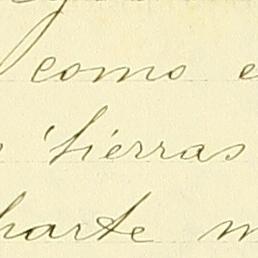 como e
tierras
harte m